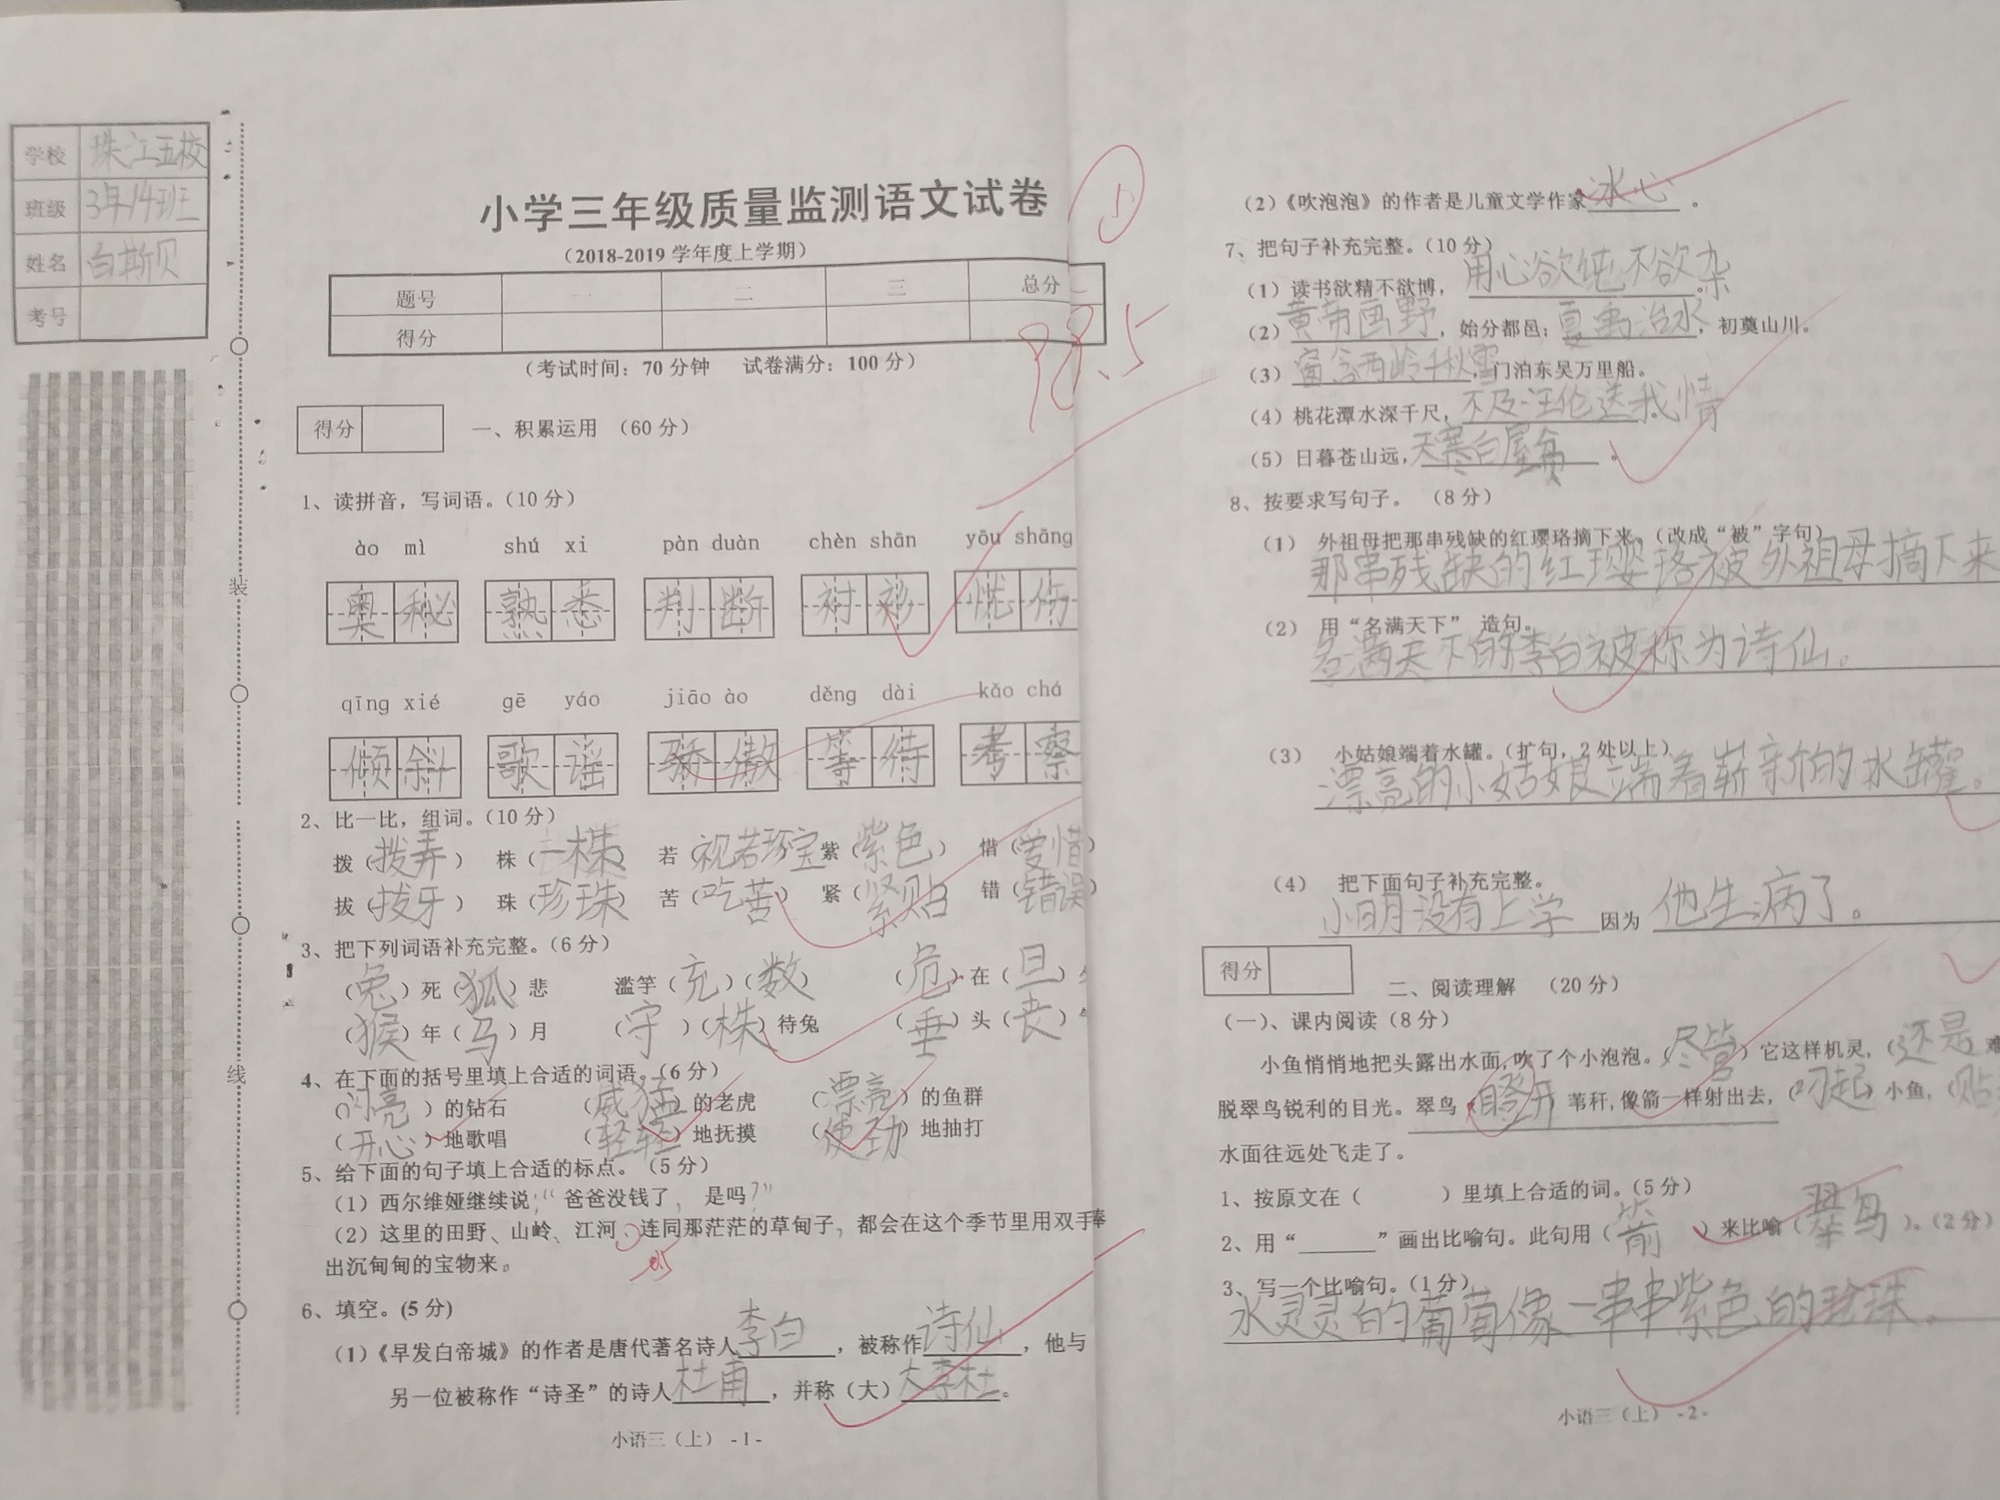 学校 珠江五校
班级 3年14班
姓名 白斯贝
考号
装
线
小学三年级质量监测语文试卷
（2018-2019 学年度上学期）
题号 一 二 三 总分
得分
98.5
（考试时间：70 分钟 试卷满分：100 分）
得分
一、积累运用 （60 分）
1、读拼音，写词语。（10 分）
ào mì shú xi pàn duàn chèn shān yōu shāng
奥秘 熟悉 判断 衬衫 忧伤
qīng xié gē yáo jiāo ào děng dài kǎo chá
倾斜 歌谣 骄傲 等待 考察
2、比一比，组词。（10 分）
拨（拨弄） 株（一株） 若（视若珍宝） 紫（紫色） 惜（爱惜）
拔（拔牙） 珠（珍珠） 苦（吃苦） 紧（紧贴） 错（错误）
3、把下列词语补充完整。（6 分）
（兔）死（狐）悲 滥竽（充）（数） （危）在（旦）
（猴）年（马）月 （守）（株）待兔 （垂）头（丧）
4、在下面的括号里填上合适的词语。（6 分）
（闪亮）的钻石 （威猛）的老虎 （漂亮）的鱼群
（开心）地歌唱 （轻轻）地抚摸 （使劲）地抽打
5、给下面的句子填上合适的标点。（5 分）
（1）西尔维娅继续说：“爸爸没钱了，是吗？”
（2）这里的田野、山岭、江河、连同那茫茫的草甸子，都会在这个季节里用双手捧
出沉甸甸的宝物来。
6、填空。(5 分)
（1）《早发白帝城》的作者是唐代著名诗人李白，被称作诗仙，他与
另一位被称作“诗圣”的诗人杜甫，并称（大）大李杜。
小语三（上） - 1 -
（2）《吹泡泡》的作者是儿童文学作家冰心。
7、把句子补充完整。（10 分）
（1）读书欲精不欲博，用心欲纯不欲杂。
（2）黄帝画野，始分都邑；夏禹治水，初奠山川。
（3）窗含西岭千秋雪，门泊东吴万里船。
（4）桃花潭水深千尺，不及汪伦送我情
（5）日暮苍山远，天寒白屋贫。
8、按要求写句子。 （8 分）
（1） 外祖母把那串残缺的红璎珞摘下来。（改成“被”字句）
那串残缺的红璎珞被外祖母摘下来
（2） 用“名满天下” 造句。
名满天下的李白被称为诗仙。
（3） 小姑娘端着水罐。（扩句，2 处以上）
漂亮的小姑娘端着崭新的水罐。
（4） 把下面句子补充完整。
小明没有上学 因为 他生病了。
得分
二、阅读理解 （20 分）
（一）、课内阅读（8 分）
小鱼悄悄地把头露出水面，吹了个小泡泡。（尽管）它这样机灵，（还是 难
脱翠鸟锐利的目光。翠鸟（蹬开）苇秆，像箭一样射出去，（叼起）小鱼，（贴
水面往远处飞走了。
1、按原文在（ ）里填上合适的词。（5 分）
2、用“______”画出比喻句。此句用（箭）来比喻（翠鸟）。（2 分）
3、写一个比喻句。（1 分）
水灵灵的葡萄像一串串紫色的珍珠。
小语三（上） - 2 -